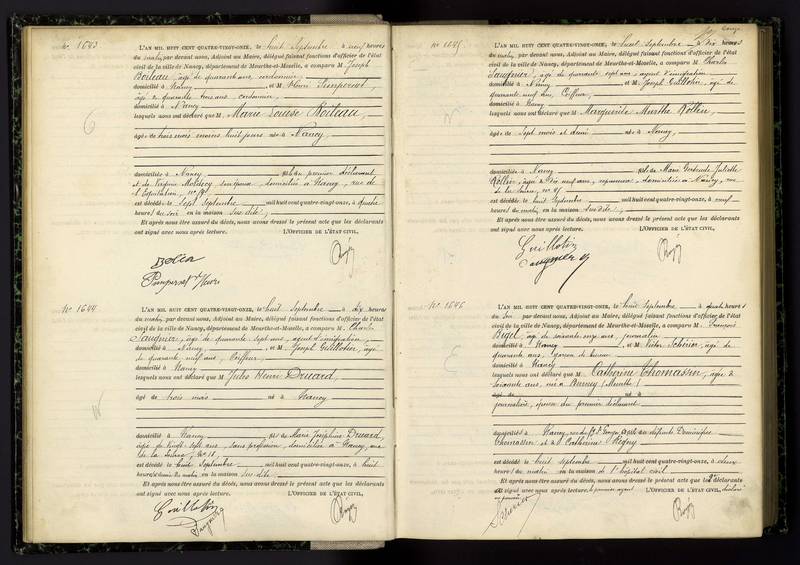 N° 1643
L'AN MIL HUIT CENT QUATRE-VINGT-ONZE, le huit Septembre à neuf heures
du matin, par devant nous, Adjoint au Maire, délégué faisant fonctions d'officier de l'état
civil de la ville de Nancy, département de Meurthe-et-Moselle, a comparu M. Joseph
Boileau, âgé de quarante ans, cordonnier,
domicilié à Nancy et M. Henri
âgé de quarante trois ans, cordonnier,
domicilié à Nancy
lesquels nous ont déclaré que Marie Louise Boileau,
âgée de trois mois moins huit jours née à Nancy,
domiciliée à Nancy fille du premier déclarant
et de Virginie domiciliée à Nancy, rue de
l'Equitation, n°
est décédée le sept Septembre mil huit cent quatre-vingt-onze, à quatre
heures du soir en la maison sus dite,
Et après nous être assuré du décès, nous avons dressé le présent acte que les déclarants
ont signé avec nous après lecture. L'OFFICIER DE L'ÉTAT CIVIL,
N° 1644
L'AN MIL HUIT CENT QUATRE-VINGT-ONZE, le huit Septembre à dix heures
du matin, par devant nous, Adjoint au Maire, délégué faisant fonctions d'officier de l'état
civil de la ville de Nancy, département de Meurthe-et-Moselle, a comparu M. Charles
Saugnier, âgé de quarante sept ans, agent d'inhumation,
domicilié à Nancy, et M. Joseph Guillotin, âgé
de quarante neuf ans, Coiffeur,
domicilié à Nancy
lesquels nous ont déclaré que M. Jules Henri Druard,
âgé de trois mois né à Nancy
domicilié à Nancy fils de Marie Joséphine Druard,
âgée de vingt sept ans, sans profession, domiciliée à Nancy, rue
est décédé le huit Septembre mil huit cent quatre-vingt-onze, à huit
heures du matin en la maison sus dite
Et après nous être assuré du décès, nous avons dressé le présent acte que les déclarants
ont signé avec nous après lecture. L'OFFICIER DE L'ÉTAT CIVIL,
Guillotin
Saugnier
N° 1645
L'AN MIL HUIT CENT QUATRE-VINGT-ONZE, le huit Septembre à dix heures
du matin, par devant nous, Adjoint au Maire, délégué faisant fonctions d'officier de l'état
civil de la ville de Nancy, département de Meurthe-et-Moselle, a comparu M. Charles
Saugnier, âgé de quarante sept ans, agent d'inhumation,
domicilié à Nancy et M. Joseph Guillotin, âgé de
quarante neuf ans, Coiffeur,
domicilié à Nancy
lesquels nous ont déclaré que Marguerite Marthe Rollin,
âgée de sept mois et demi née à Nancy,
domiciliée à Nancy fille de Marie Gertrude Juliette
Rollin, âgée de dix neuf ans, repasseuse, domiciliée à Nancy, rue
est décédée le huit Septembre mil huit cent quatre-vingt-onze, à neuf
heures du matin, en la maison susdite,
Et après nous être assuré du décès, nous avons dressé le présent acte que les déclarants
ont signé avec nous après lecture. L'OFFICIER DE L'ÉTAT CIVIL,
Guillotin
Saugnier
N° 1646
L'AN MIL HUIT CENT QUATRE-VINGT-ONZE, le huit Septembre à quatre heures
du soir par devant nous, Adjoint au Maire, délégué faisant fonctions d'officier de l'état
civil de la ville de Nancy, département de Meurthe-et-Moselle, a comparu M. François
Bigel, âgé de soixante onze ans, journalier
domicilié à Nancy, et M. Victor âgé de
quarante ans, garçon de bureau
domicilié à Nancy
lesquels nous ont déclaré que M. Catherine Thomassin, âgée de
soixante ans, née à (Meurthe)
âgé de né à
journalière, épouse du premier déclarant
domiciliée à Nancy, fille des défunts Dominique
Thomassin et de Catherine
est décédée le huit septembre mil huit cent quatre-vingt-onze, à deux
heures du matin en la maison de l'hôpital civil
Et après nous être assuré du décès, nous avons dressé le présent acte que les déclarants
a signé avec nous après lecture. le premier ayant L'OFFICIER DE L'ÉTAT CIVIL, déclaré